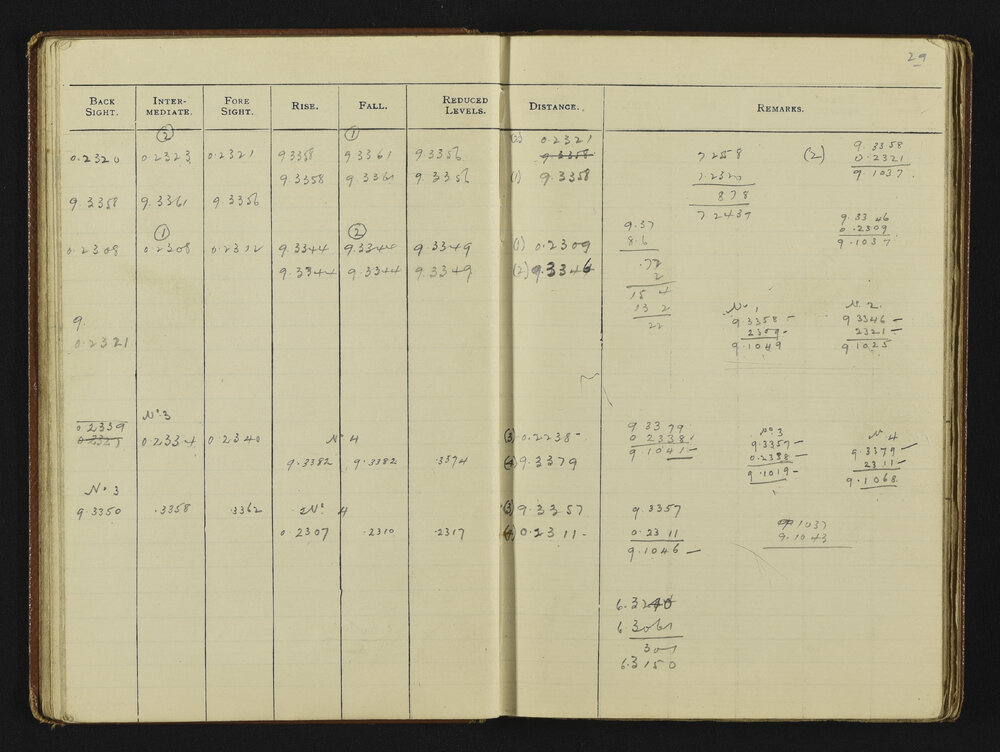 29
BACK SIGHT. INTER-MEDIATE. FORE SIGHT. RISE. FALL. REDUCED LEVELS. DISTANCE. REMARKS.
② ① (2) 0.2321
0.2320 0.2323 0.2321 9.3358 9.3361 9.3356 9.3358
9.3358 9.3361 9.3356 (1) 9.3358
9.3358 9.3361 9.3356
① ②
0.2308 0.2308 0.2312 9.3344 9.3344 9.3349 (1) 0.2309
9.3344 9.3344 9.3349 (2) 9.3346
9.
0.2321
No. 3
0.2339
0.2334 0.2340 No 4 (3) 0.2238
9.3382 9.3382 .3374 (4) 9.3379
No. 3
9.3350 .3358 .3362 No 4 (3) 9.3357
0.2307 .2310 .2317 (4) 0.2311
7.2558
7.2320
878
7.2439
(2) 9.3358
0.2321
9.1037
9.3346
0.2309
9.1037
9.37
8.6
.72
2
15 4
13 2
22
No. 1
9.3358
2309
9.1049
No. 2.
9.3346
2321
9.1025
9.3379
0.2338
9.1041
No 3
9.3357
0.2338
9.1019
No 4
9.3379
2311
9.1068
9.3357
0.2311
9.1046
9.1037
9.1043
6.3240
6.3061
301
6.3150